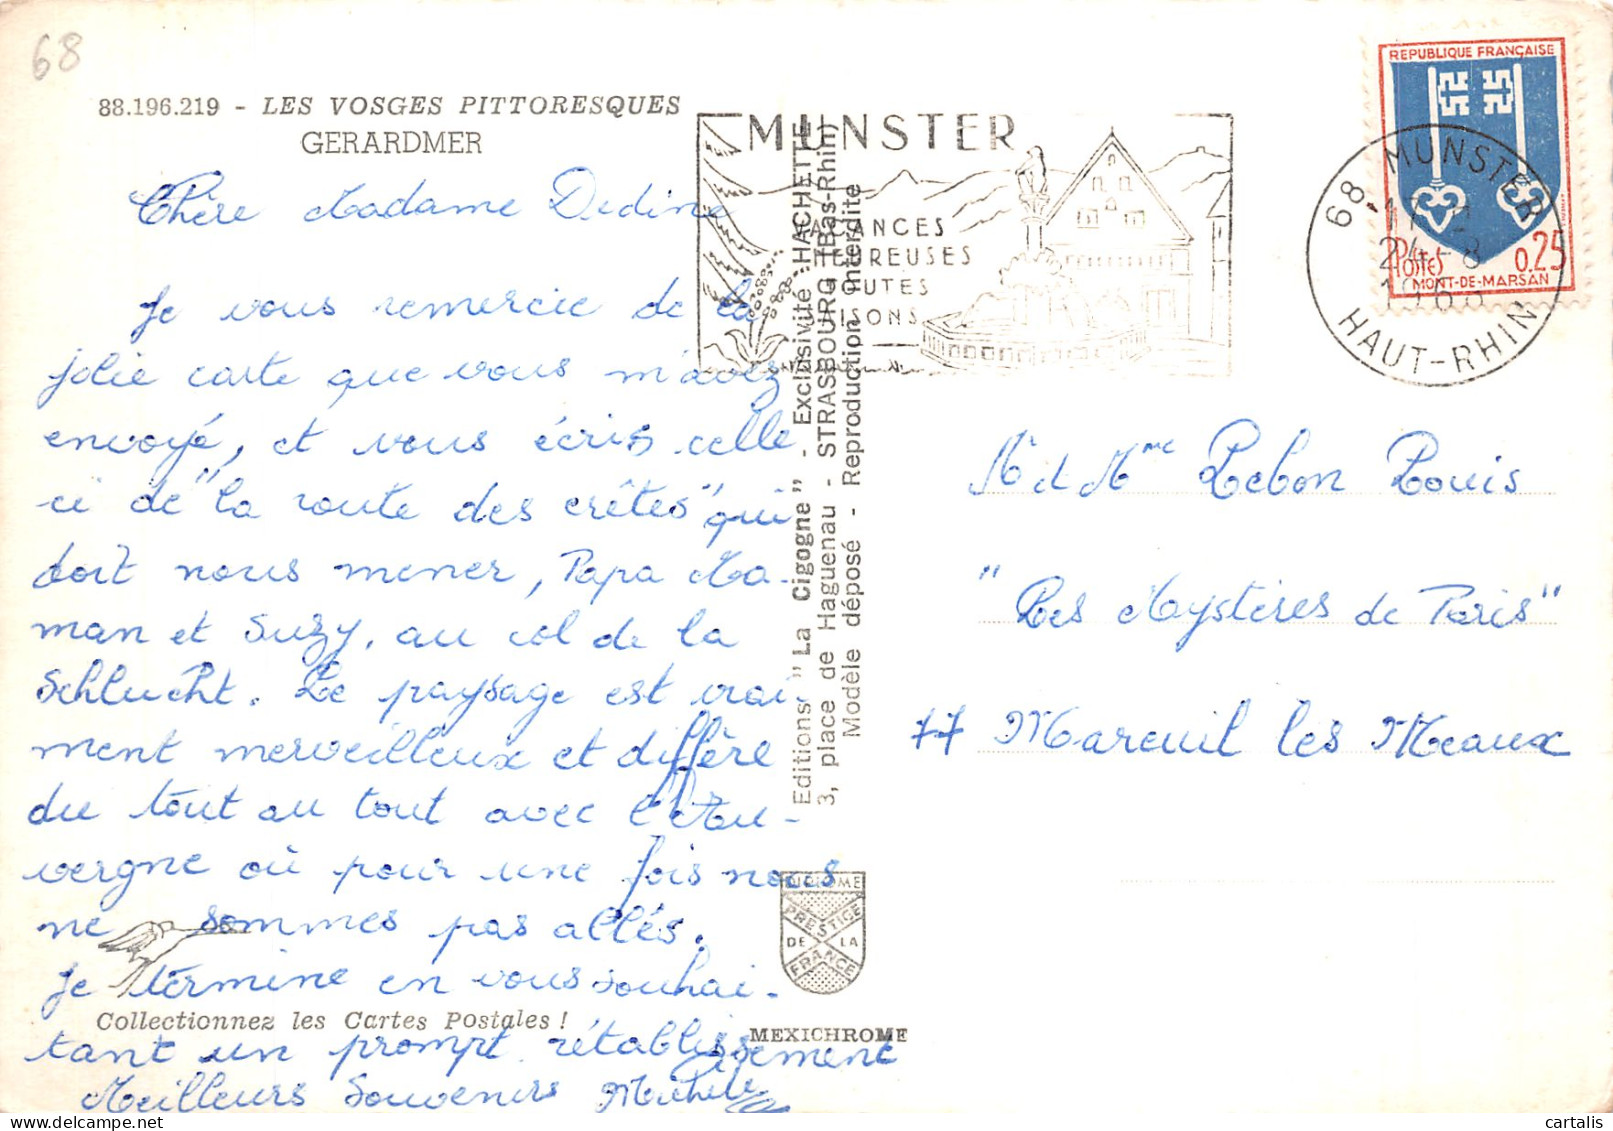 68
88.196.219 - LES VOSGES PITTORESQUES
GERARDMER
Chère Madame Dedine
Je vous remercie de la
jolie carte que vous m'avez
envoyé, et vous écris celle
ci de "la route des crêtes" qui
doit nous mener, Papa Ma-
man et Suzy, au col de la
Schlucht. Le paysage est vrai-
ment merveilleux et diffère
du tout au tout avec l'Au-
vergne où pour une fois nous
ne sommes pas allés.
Je termine en vous souhai-
tant un prompt rétablissement
Meilleurs Souvenirs Michèle
Collectionnez les Cartes Postales !
Editions "La Cigogne" - Exclusivité HACHETTE
3, place de Haguenau - STRASBOURG (Bas-Rhin)
Modèle déposé - Reproduction interdite
DIPLOME
PRESTIGE
DE LA
FRANCE
MEXICHROME
MUNSTER
VACANCES
HEUREUSES
TOUTES
SAISONS
68 MUNSTER
24-8
HAUT-RHIN
REPUBLIQUE FRANÇAISE
Postes 0,25
MONT-DE-MARSAN
M et Mme Lebon Louis
"Les Mystères de Paris"
77 Mareuil les Meaux
cartalis